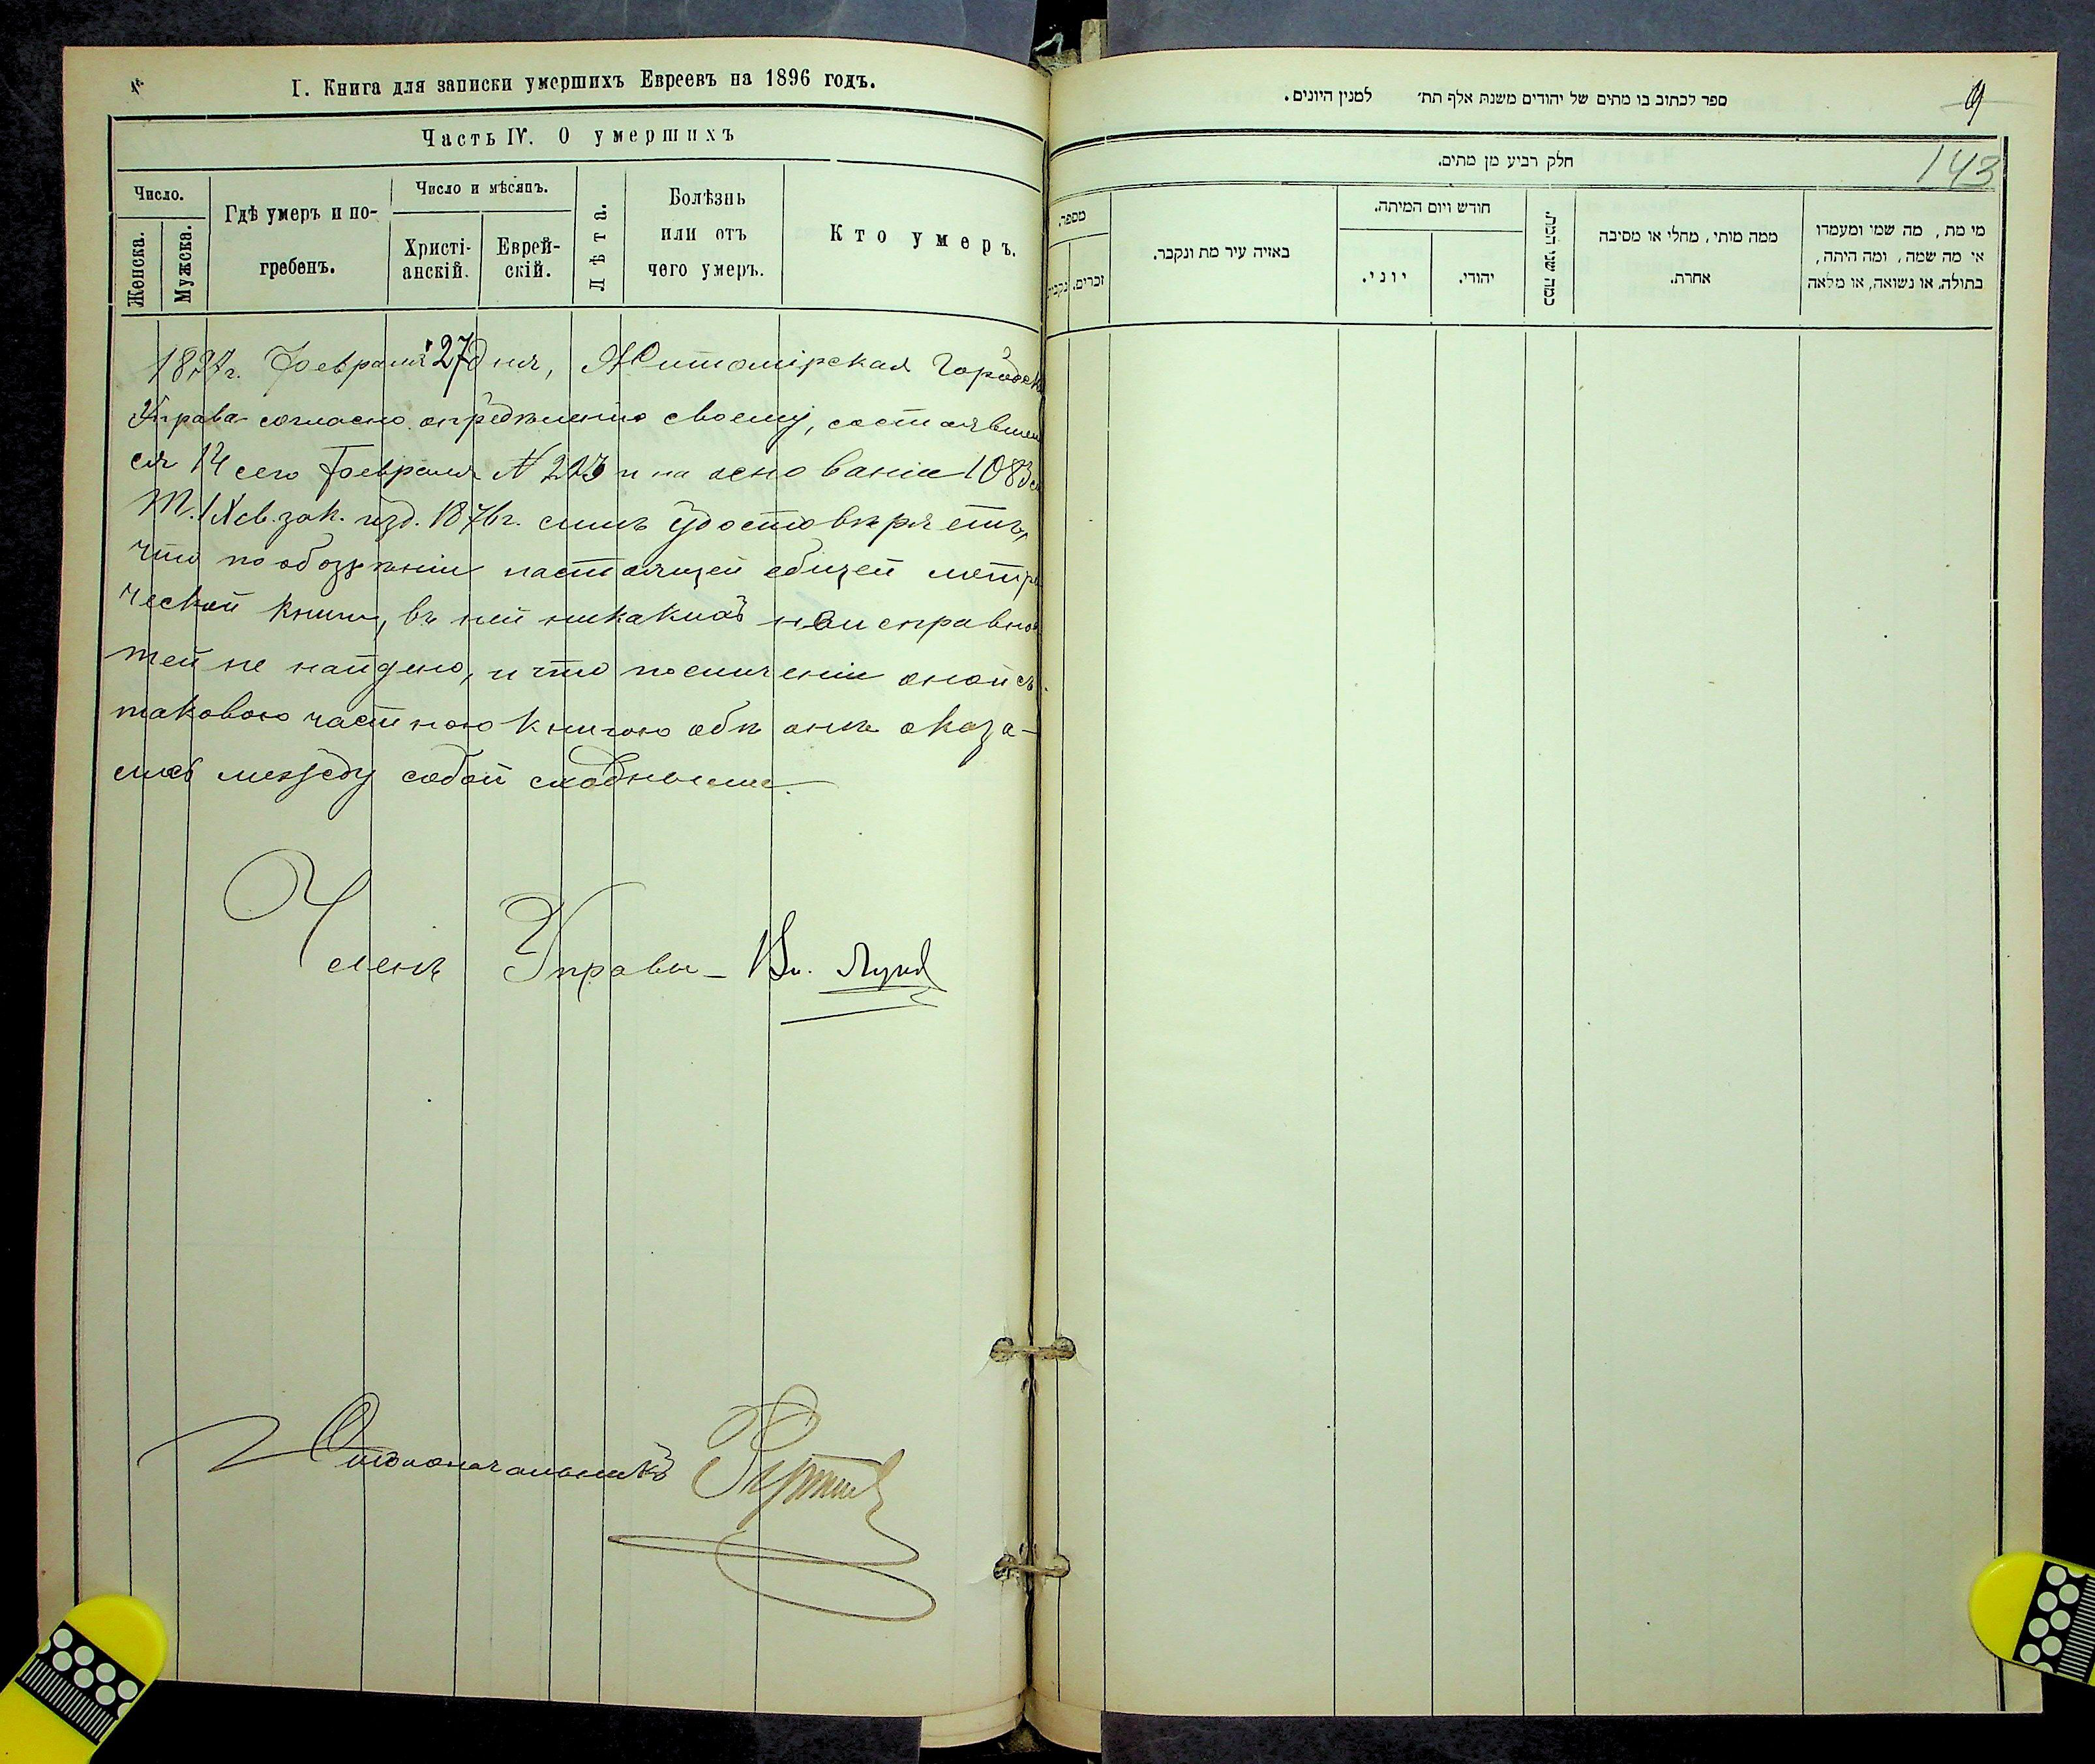 І. Книга для записки умершихъ Евреевъ на 1896 годъ.
Часть IV. О умершихъ
Число.
Женска.
Мужска.
Гдѣ умеръ и по-
гребенъ.
Число и мѣсяцъ.
Христі-
анскій.
Еврей-
скій.
Лѣта.
Болѣзнь
или отъ
чего умеръ.
Кто умеръ.
1897г. Февраля 27 дня, Житомірская Городск
Управа согласно опредѣленію своему, состоявшем
ся 14 сего Февраля № 223 и на основаніи 1083 ст
Т. IX св. зак. изд. 1876г. симъ удостовѣряетъ,
что по обозрѣніи настоящей общей метри
ческой книги, въ ней никакихъ неисправнос
тей не найдено, и что по сличеніи оной съ
таковою частною книгою обѣ онѣ оказа-
лись между собой сходными.
Членъ Управы
Столоначальникъ
ספר לכתוב בו מתים של יהודים משנת אלף תת׳ למנין היונים.
9
143
חלק רביע מן מתים.
מספר.
זכרים.
נקבות
באיזה עיר מת ונקבר.
חודש ויום המיתה.
יוני.
יהודי.
כמה שני חיות.
ממה מותי, מחלי או מסיבה
אחרת.
מי מת, מה שמו ומעמדו
אי מה שמה, ומה היתה,
בתולה, או נשואה, או מלאה